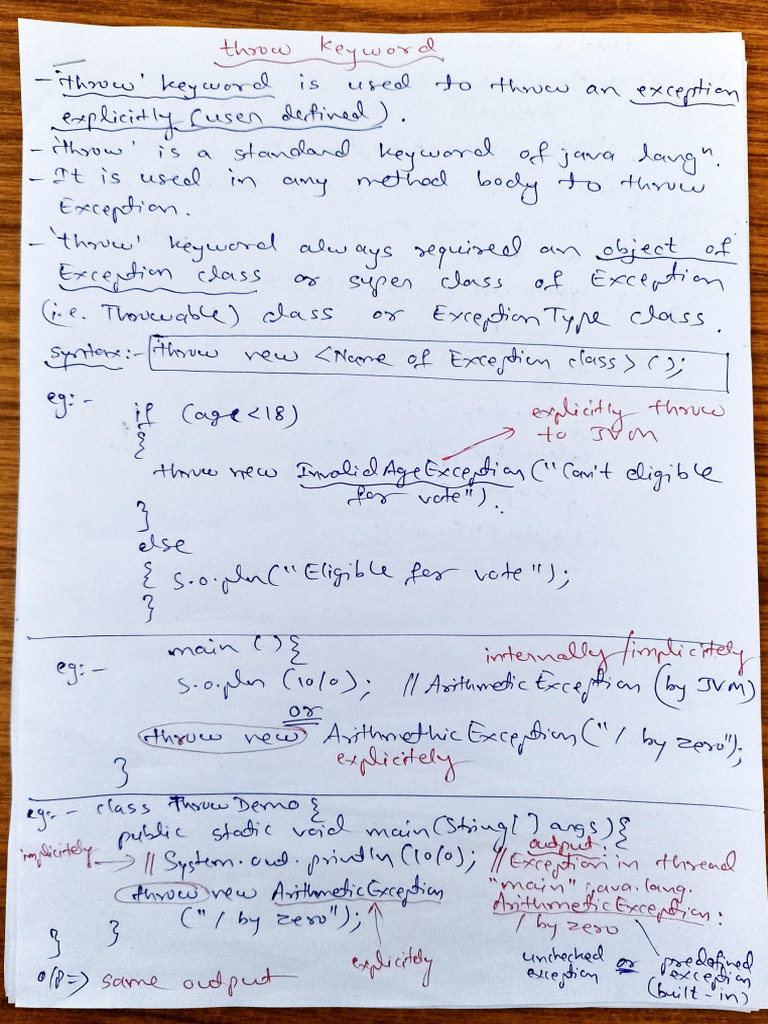 throw keyword
- 'throw' keyword is used to throw an exception
explicitly (user defined).
- 'throw' is a standard keyword of java langⁿ.
- It is used in any method body to throw
Exception.
- 'throw' keyword always required an object of
Exception class or super class of Exception
(i.e. Throwable) class or ExceptionType class.
syntax:- throw new <Name of Exception class> ();
eg:-
if (age<18)
explicitly throw
to JVM
{
throw new InvalidAgeException("Can't eligible
for vote").
}
else
{ S.o.pln("Eligible for vote");
}
eg:- main () {
internally/implicitely
S.o.pln (10/0); // ArithmeticException (by JVM)
or
throw new ArithmethicException("/ by zero");
explicitely
}
eg:- class ThrowDemo {
public static void main(String[] args) {
output:
implicitely → // System.out.println(10/0; // Exception in thread
"main" java.lang.
throw new ArithmeticException
ArithmeticException:
("/ by zero");
/ by zero
} }
explicitely
unchecked exception or predefined exception (built-in)
o/p=> same output